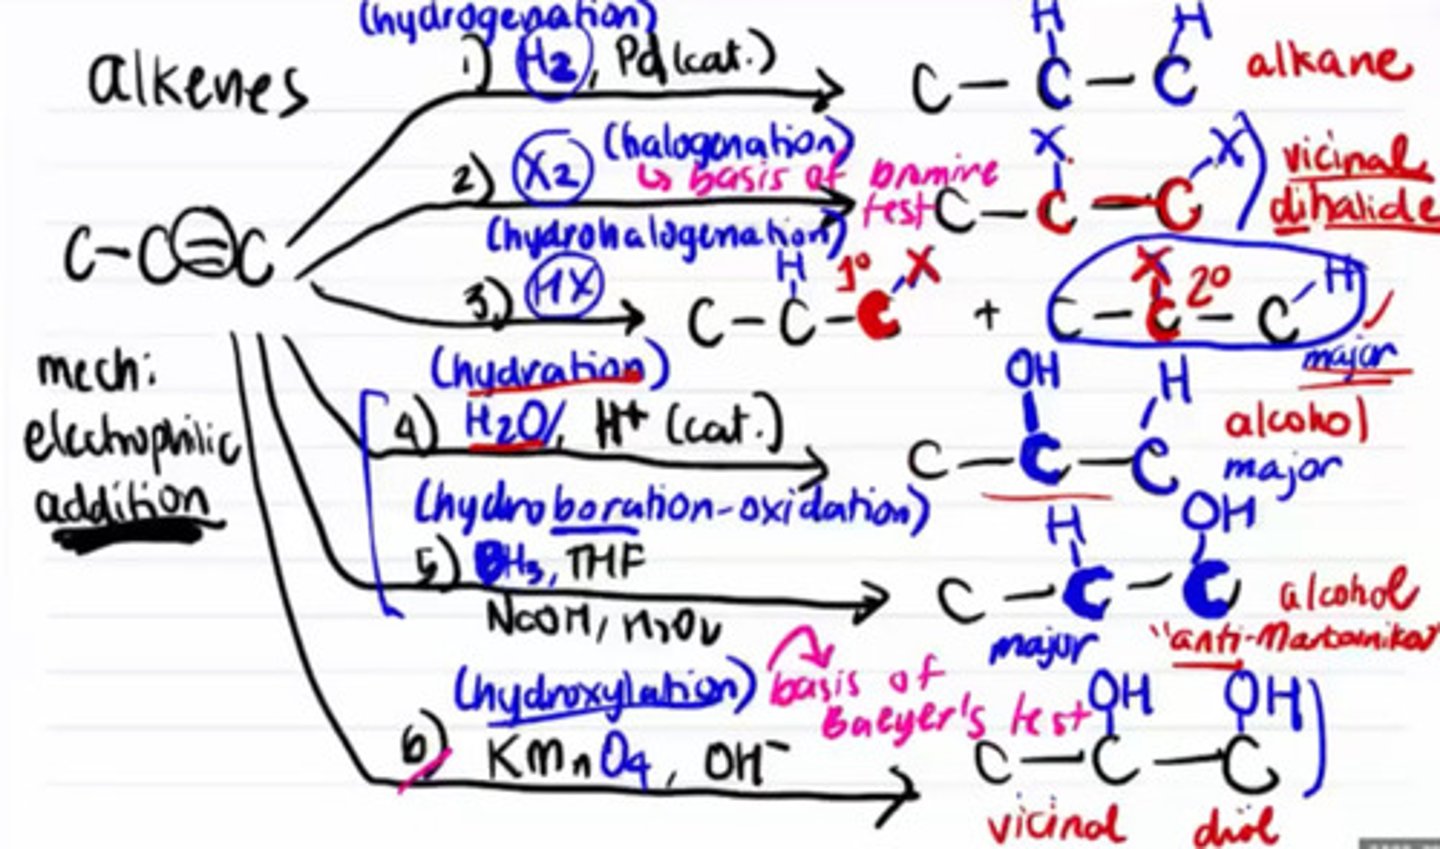 alkenes
(hydrogenation)
1) H2, Pd (cat.)
H H
C - C - C alkane
(halogenation)
2) X2 ↳ basis of bromine test
X X
C - C - C vicinal dihalide
C - C = C
(hydrohalogenation)
3) HX
H 1° X
C - C - C
+
X 2° H
C - C - C
major
mech:
electrophilic
addition
(hydration)
4) H2O, H+ (cat.)
OH H
C - C - C alcohol
major
(hydroboration-oxidation)
5) BH3, THF
NaOH, H2O2
H OH
C - C - C alcohol
major "anti-Markovnikov"
(hydroxylation) basis of
Baeyer's test
6) KMnO4, OH-
OH OH
C - C - C
vicinal diol